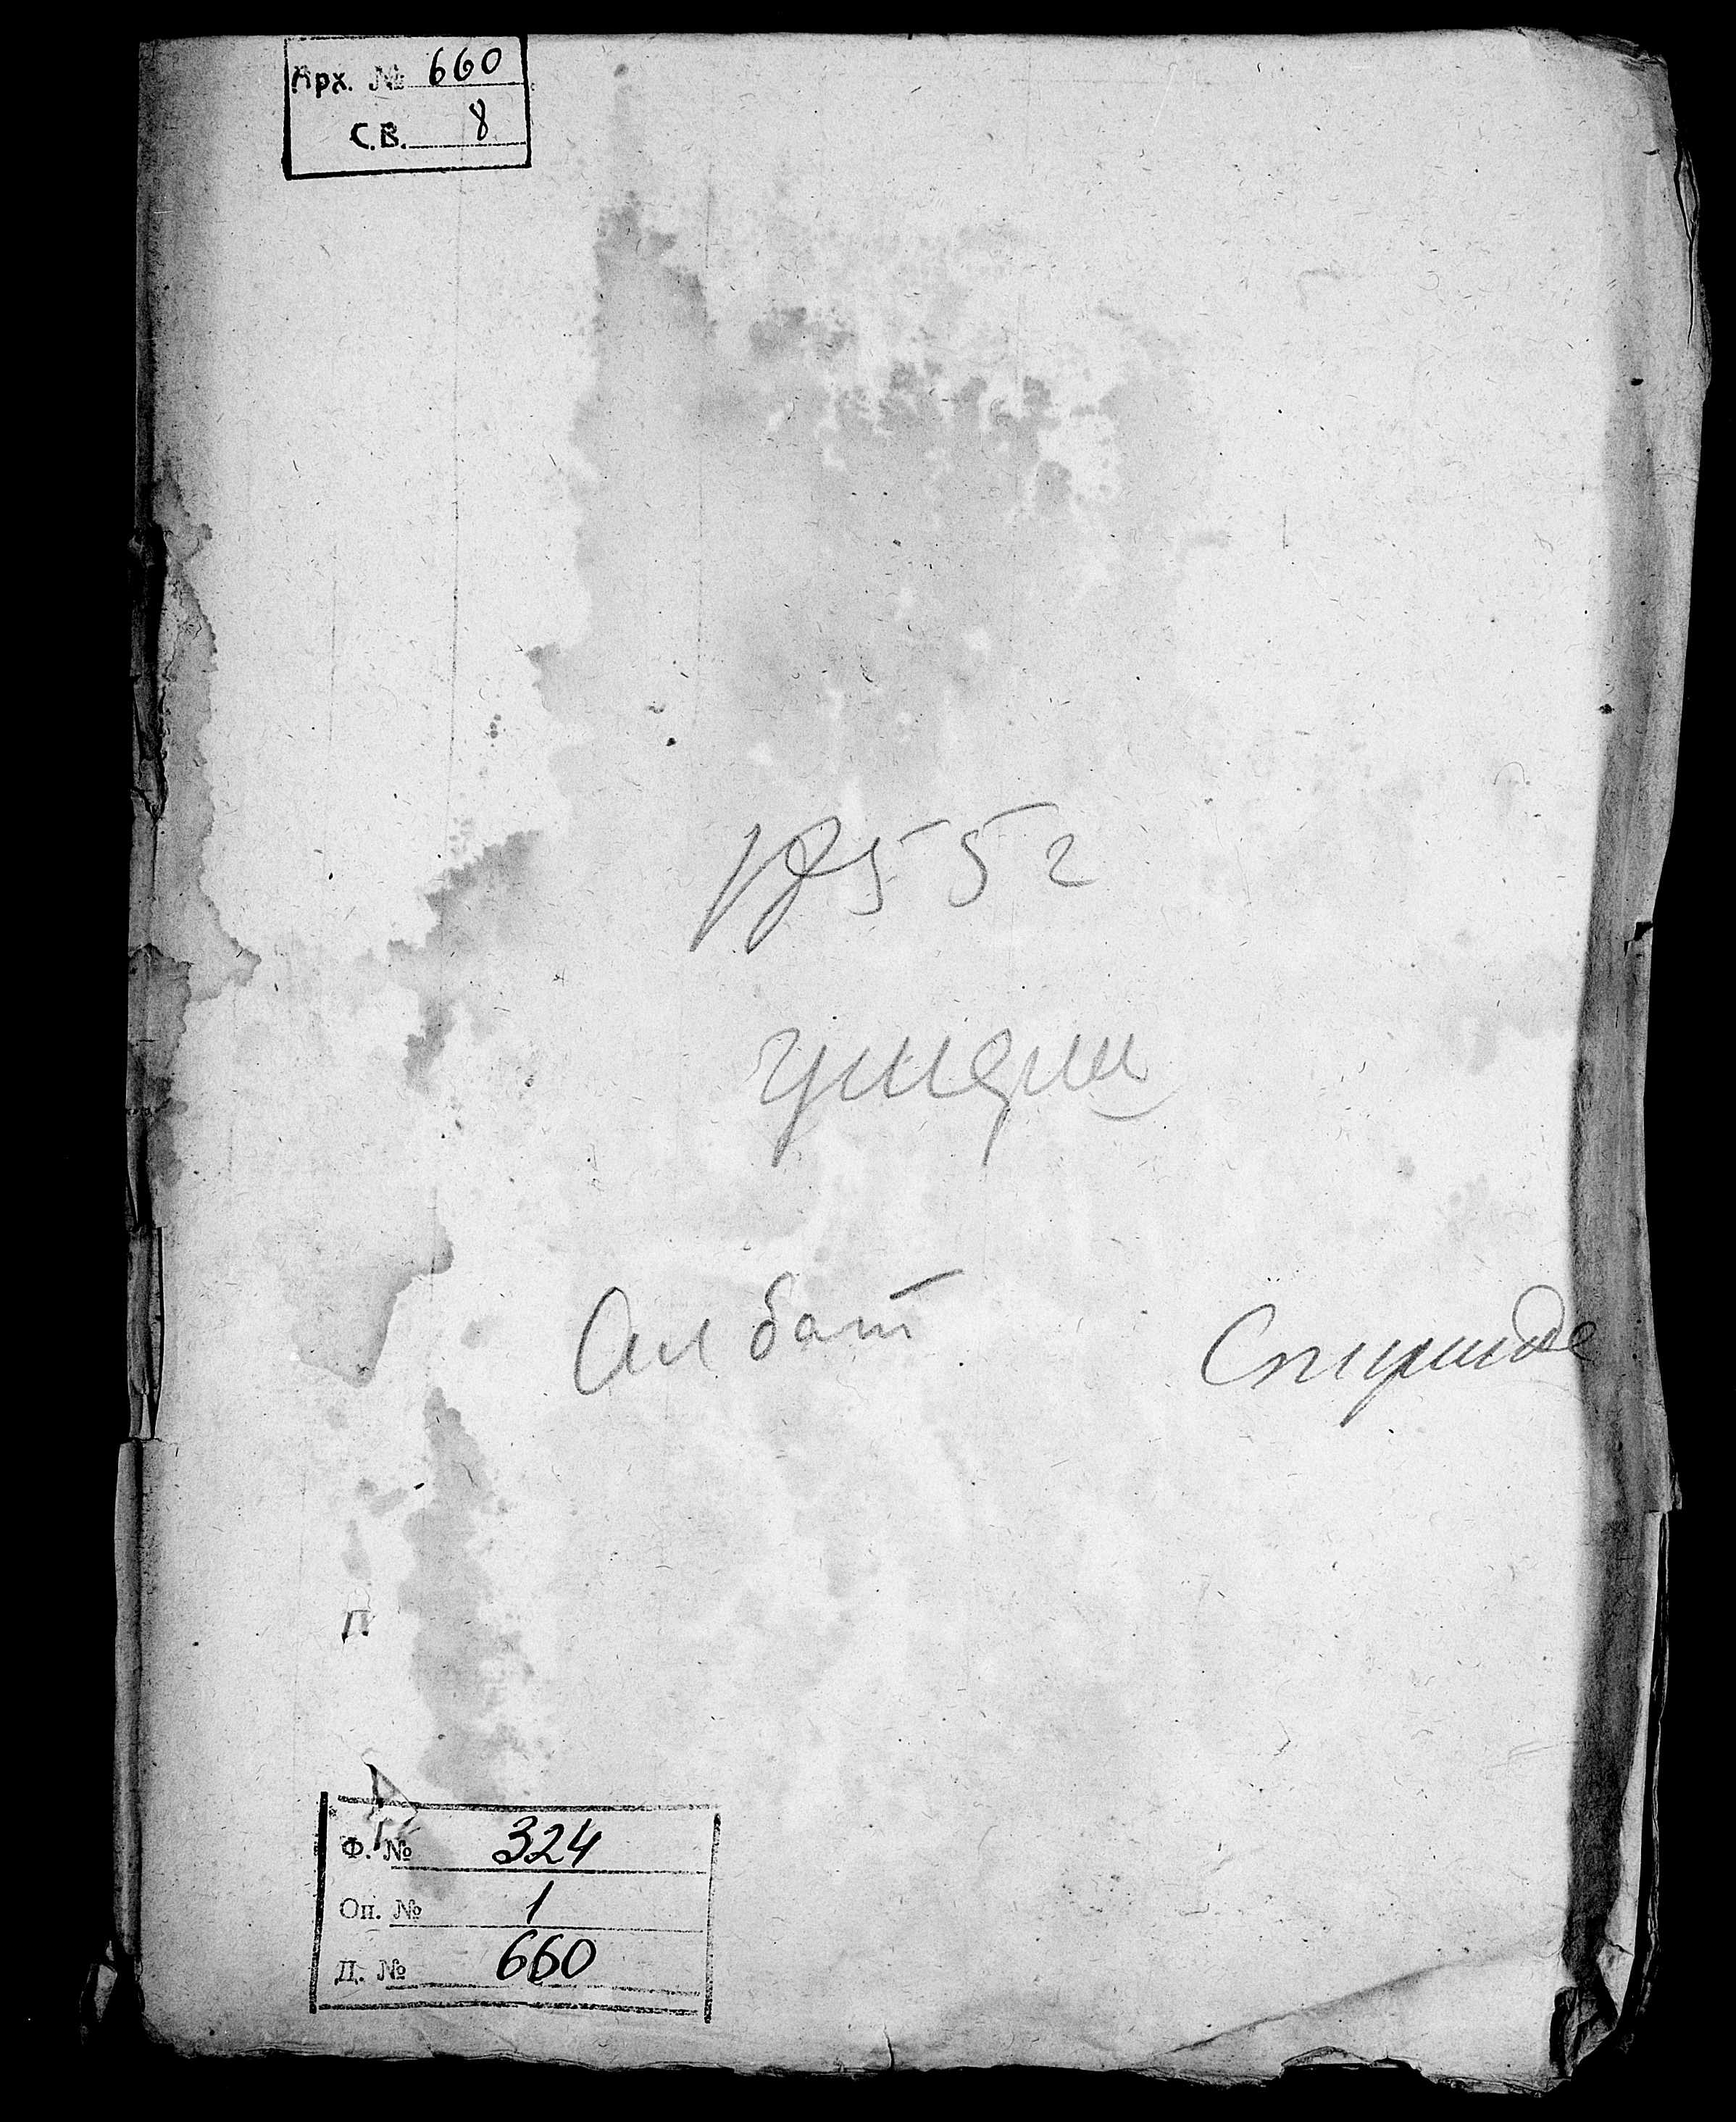 Арх. № 660
С.В. 8
1855 г
умерш
Албат
П
Ф. № 324
Оп. № 1
Д. № 660